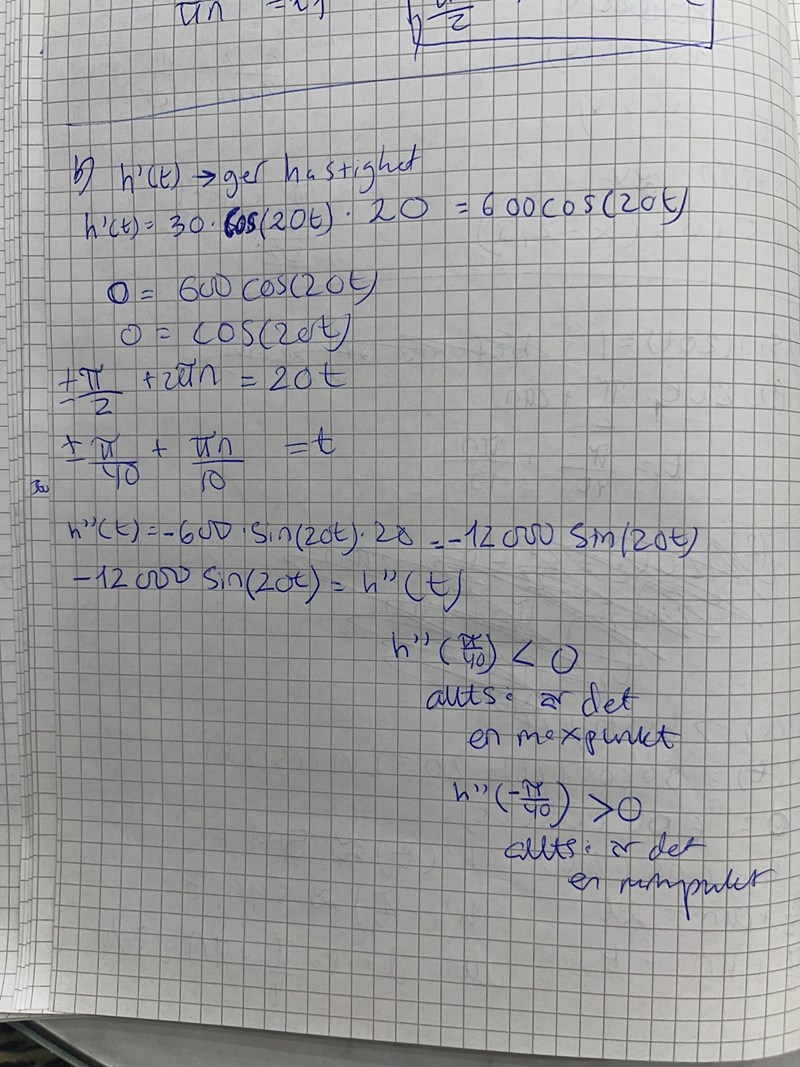 πn
π/2
b) h'(t) → ger hastighet
h'(t) = 30 · cos(20t) · 20 = 600cos(20t)
0 = 600 cos(20t)
0 = cos(20t)
± π/2 + 2πn = 20t
± π/40 + πn/10 = t
h''(t) = -600 · sin(20t) · 20 = -12 000 sin(20t)
-12 000 sin(20t) = h''(t)
h''(π/40) < 0
allts: är det
en maxpunkt
h''(-π/40) > 0
allts: är det
en minpunkt